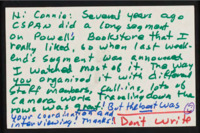 Hi Connie: Several years ago
CSPAN did a long segment
on Powell's Bookstore that I
really liked, so when last week-
end's segment was announced
I watched most of it. The way
you organized it with different
staff members calling into
camera work translating down the
rows was great. But the best was
your coordination and
interviewing! Thanks
Don't write